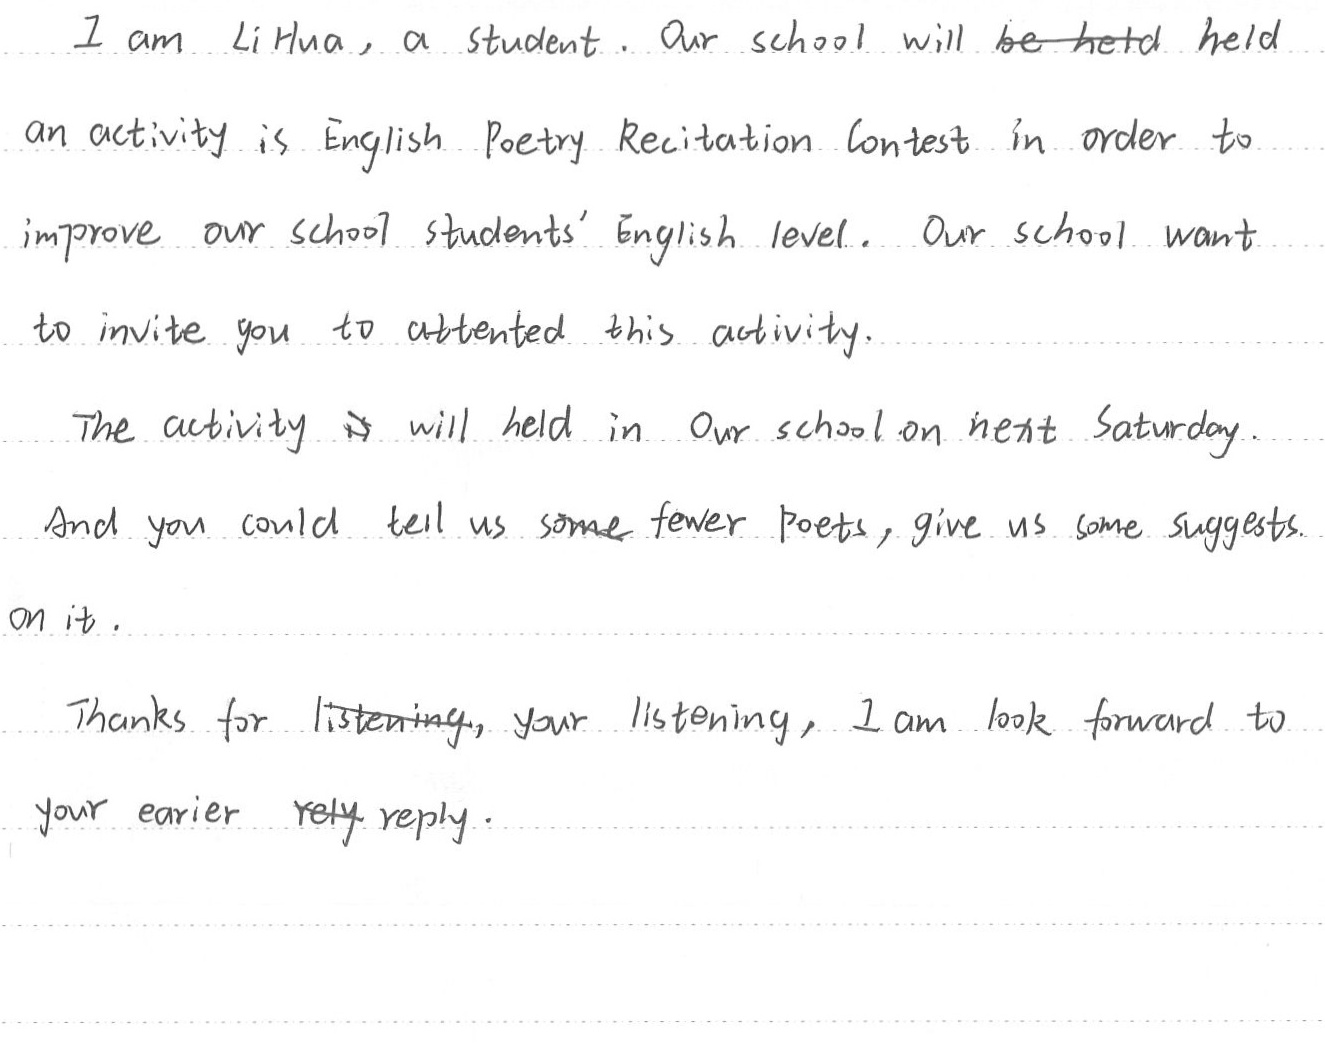 I am Li Hua, a student. Our school will be held held
an activity is English Poetry Recitation Contest in order to
improve our school students' English level. Our school want
to invite you to attented this activity.
The activity is will held in Our school on next Saturday.
And you could tell us some fewer Poets, give us some suggests.
on it.
Thanks for listening, your listening, I am look forward to
your earier rely reply.